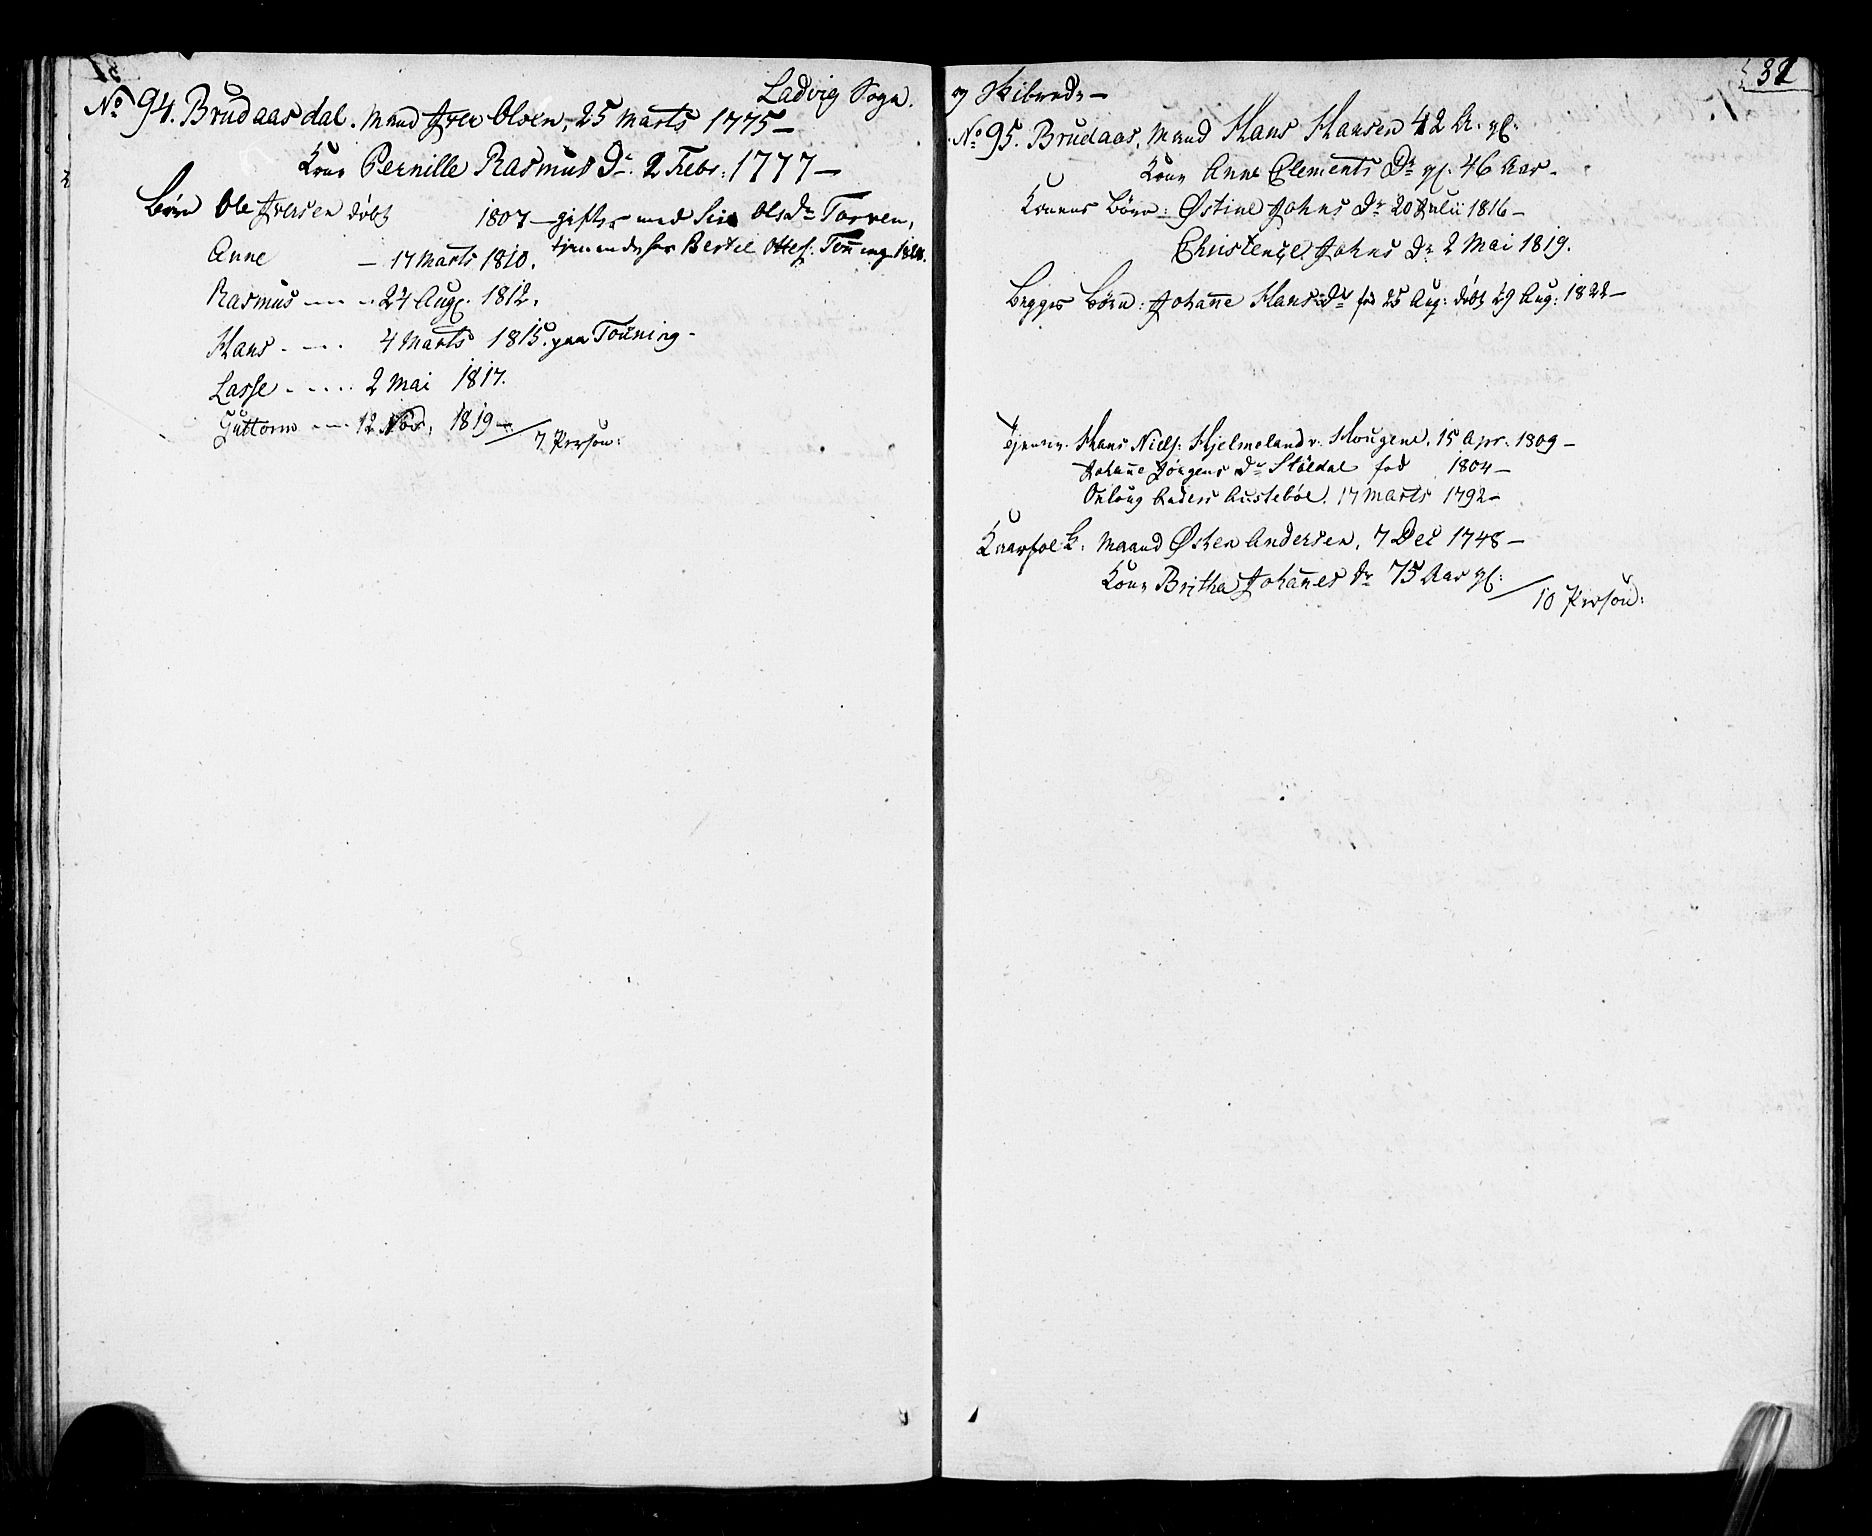 Ladvig Sogn.
No 94. Brudaasdal. Mand Iver Olsen, 25 Marts 1775 —
Kone Pernille Rasmus Dr. 2 Febr: 1777 —
Børn Ole Iversen døbt 1807 — gifter med Siri Ols Dr Torven,
tjenende hos Bertel Ottes:
Anne — 17 Marts 1810.
Rasmus — — 24 Aug. 1812.
Hans - — - 4 Marts 1815. paa Tønning -
Lasse - - - - - 2 Mai 1817.
Guttorm — — 12 Nov. 1819 —
7 Person:
7 Skibrede —
32
No 95. Brudaas, Mand Hans Hansen 42 A. gl:
Kone Anne Clements Dr gl. 46 Aar -
Konens Børn: Østine Johns Dr 20 Julii 1816 —
Christense Johns Dr 2 Mai 1819.
Begges Børn: Johanne Hans Dr fød 25 Aug: døbt 29 Aug: 1822 —
Tjener. Hans Niels: Hjelmeland v. Hougene, 15 Apr. 1809 —
Johanne Jørgens Dr Støldal fød 1804 —
Anders Austebøe. 17 Marts 1792 —
Kaarfolk. Maand Østen Andersen, 7 Dec 1748 —
Kone Britha Johannes Dr 75 Aar gl:
10 Person: